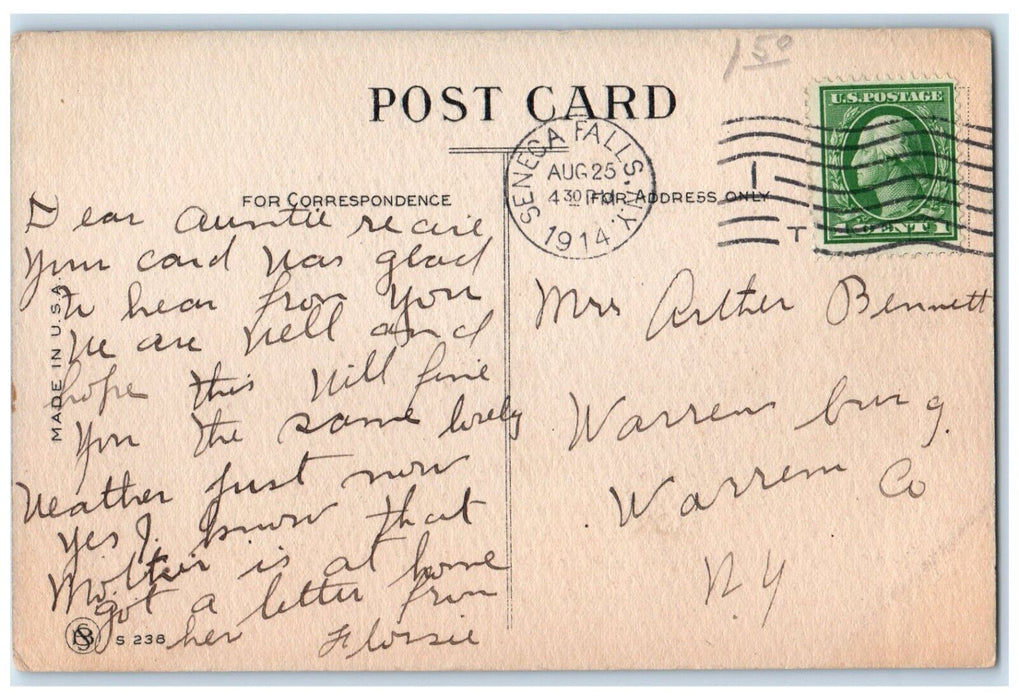 1 50
POST CARD
U.S. POSTAGE
1 CENT 1
SENECA FALLS N.Y.
AUG 25
4 30 P.M.
1914
1
T
FOR CORRESPONDENCE
FOR ADDRESS ONLY
MADE IN U.S.A.
Dear Auntie recive
Your card was glad
to hear from you
We are well and
hope this will fine
you the same lovely
Weather just now
yes I know that
is at home
got a letter from
her Flossie
S 238
Mrs Arther Bennett
Warrensburg.
Warren Co
N.Y